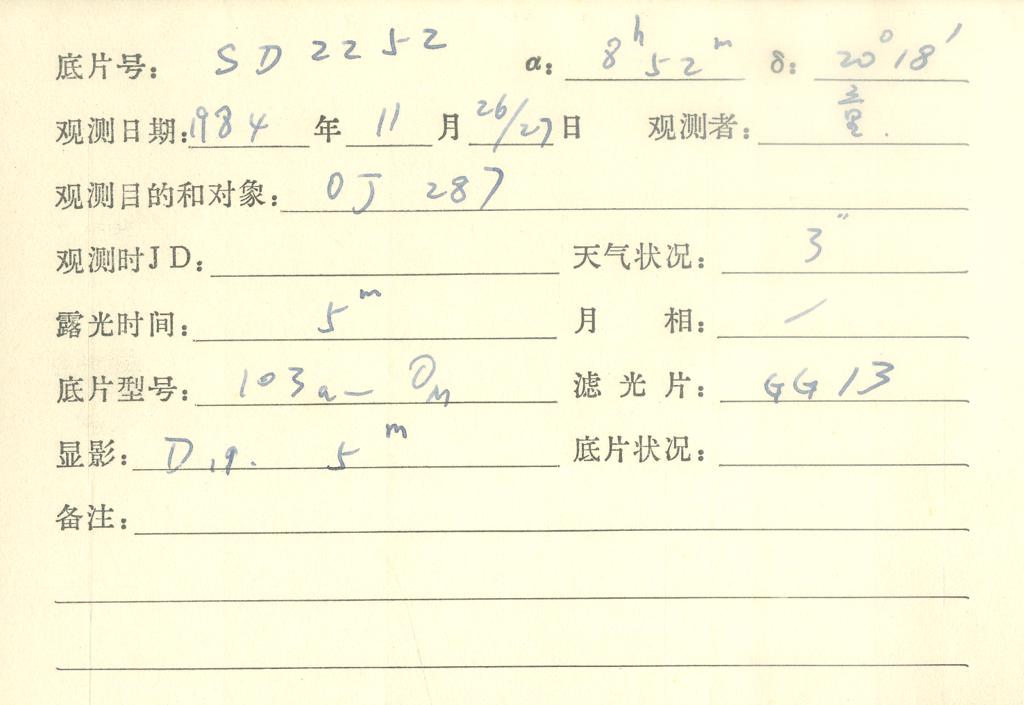 底片号： SD2252 α： 8h 52m δ： 20° 18′
观测日期：1984 年 11 月 26/27 日 观测者：
观测目的和对象： OJ 287
观测时JD： 天气状况： 3″
露光时间： 5m 月 相： /
底片型号： 103a-O 滤光片： GG13
显影： D19. 5m 底片状况：
备注：